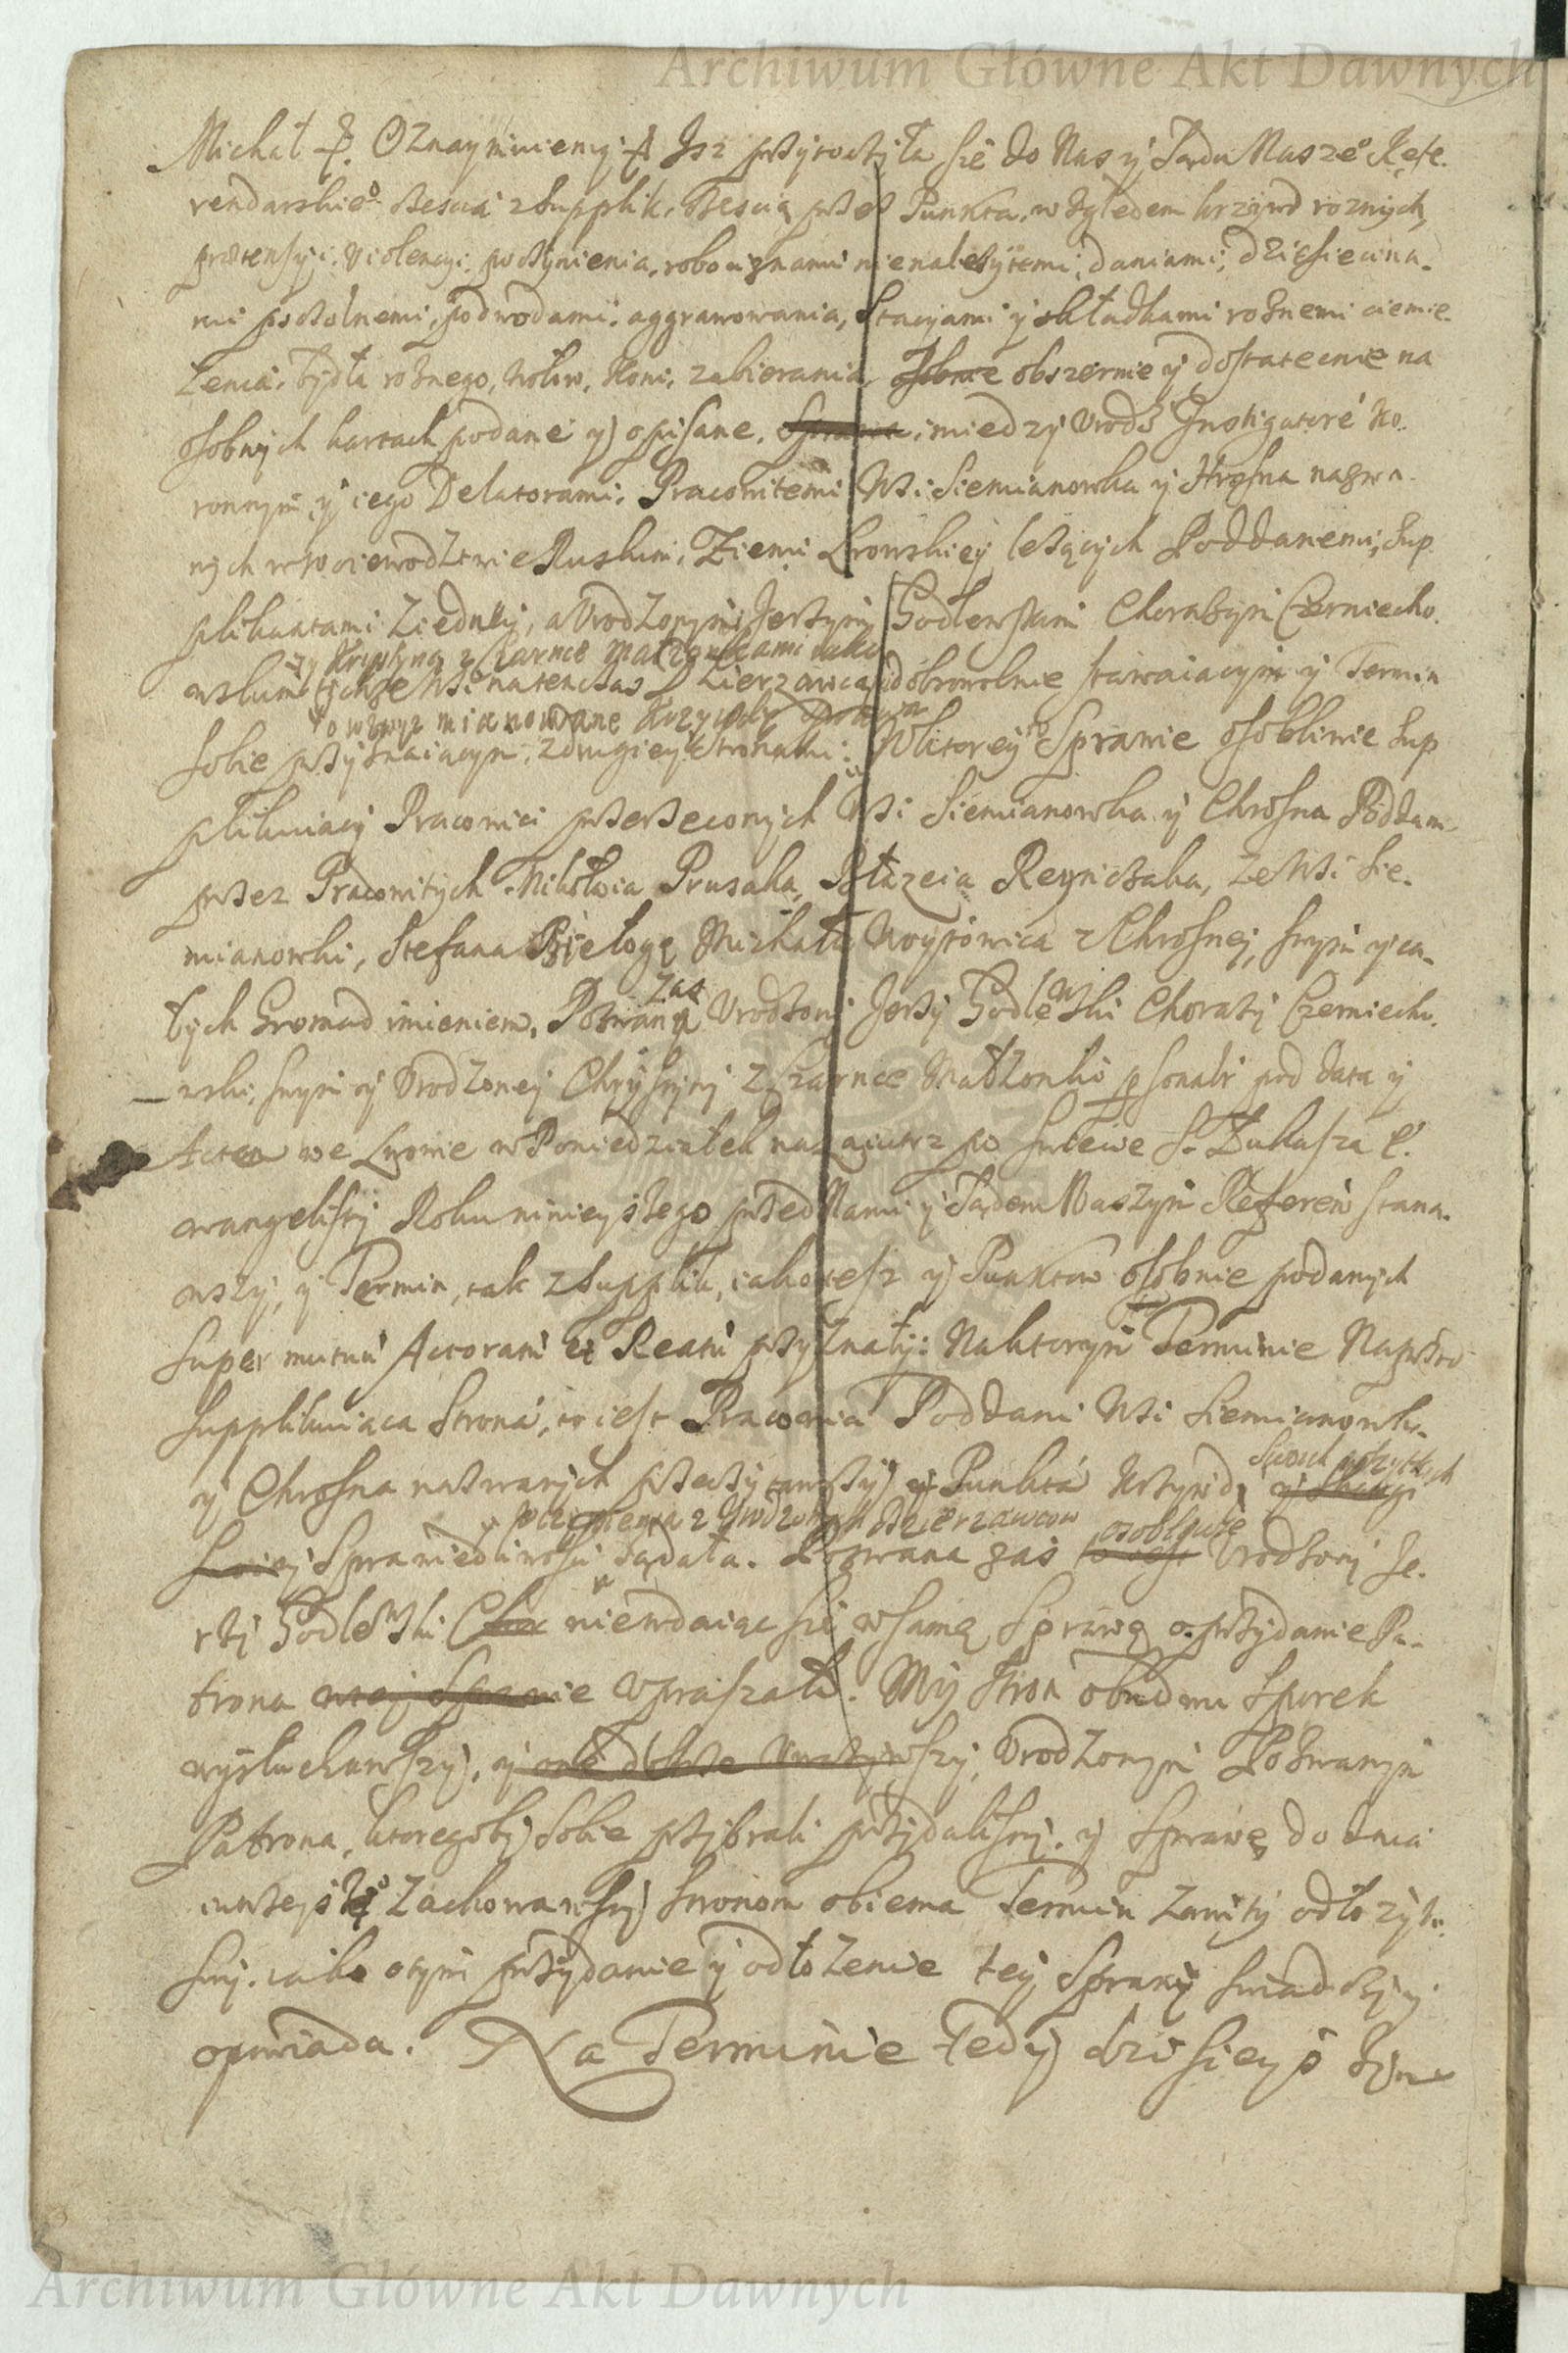 Archiwum Główne Akt Dawnych
Michał Oznaymuiemy Isz przytoczyła sie do Nas y Sądu Nasze° Refe.
rendarskie° z Supplik, przez Punkta, w względem krzywd roznych,
praetensyi, violencyi, poczynienia, robociznami nienależytemi, daniami, dziesiecina-
mi pszczolnemi, podwodami, aggrawowania, Stacyami y składkami rożnemi ciemie-
żenia, bydła rożnego, Wołow, Koni, zabierania obszernie y dostatecznie na
osobnych kartach podane y opisane, miedzy Urodz Instigatorē Ko-
ronnym, y iego Delatorami, Pracowitemi Wsi Siemianowka y Chrosna nazwa-
nych w Woiewodztwie Ruskim, Ziemi Lwowskiey leżących Poddanemi, Sup-
plikantami z iedney, a Urodzonymi Jerzym Godlewskim Chorążym Czerniecho-
y Krystyną z Czarnce Małżonkami iako
wskim tychże Wsi natenczas Dzierzawcą dobrowolnie stawaiacym y Termin
o wzwyż mianowane Krzywdy
sobie przyznaiacym, z drugiey Stronami: W ktorey Sprawie osobliwie Sup-
plikuiacy Pracowici przerzeczonych Wsi Siemianowka y Chrosna Poddani
przez Pracowitych Mikołaia Prusaka, Błazeia Reyniczaka, ze Wsi Sie-
mianowki, Stefana Biełogę Michała Woytowica z Chrosney, swym y ca-
łych Gromad imieniem, Pozwany zaś Urodzony Jerzy Godlewski Chorąży Czerniecho-
wski, swym y Urodzoney Chrystyny z Czarnce Małżonki psonali pod data y
Actem we Lwowie w Poniedziałek nazaiutrz po swiecie S. Łukasza E-
wangelisty Roku ninieyszego przed Nami y Sądem Naszym Referen stana-
wszy, y Termin, tak z Supplik, iako tesz y Punktow osobnie podanych
super mutuū Actoratū et Reatū przyznały: Na ktorym Terminie Naprzod
Supplikuiaca Strona, to iest Pracowici Poddani Wsi Siemianowka
y Chrosna nazwanych przeczytawszy Punkta Krzywd Swoich
poczynienia z Urodzonych dzierzawcow osobliwie
Sprawiedliwosci żądała. Pozwana zas Urodzony Je-
rzy Godlewski niewdaiąc sie w samę Sprawę o przydanie Pa-
trona upraszał. My Stron obudwu Sporek
wysłuchawszy, Urodzonym Pozwanym
Patrona, ktoregoby sobie przybrali przydalismy, y Sprawę do dnia
iutrzeysze° zachowawszy Stronom obiema Termin Zawity odłożyli-
smy. iako o tym przydanie y odłożenie tey Sprawy swiadczy y
opowiada. Na Terminie tedy dzisieyszym
Archiwum Główne Akt Dawnych